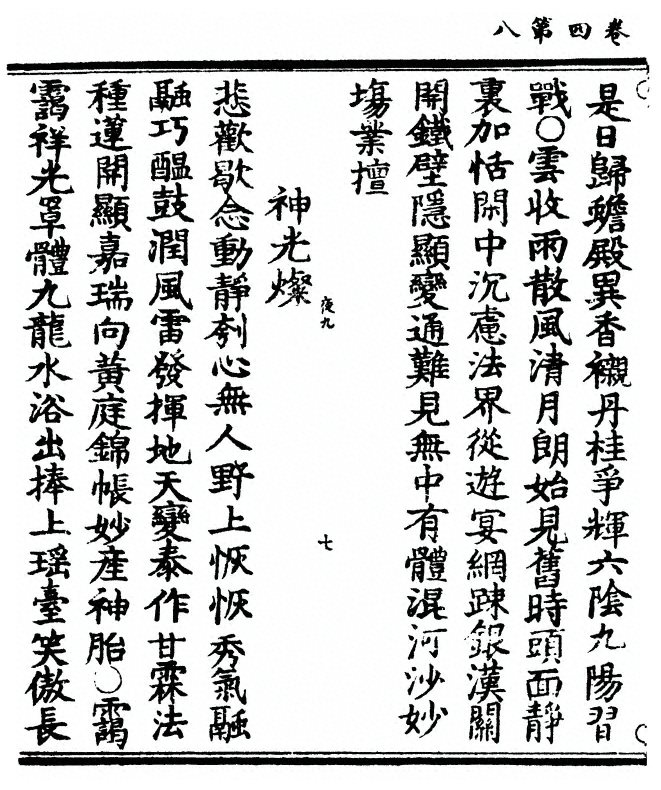 卷四第八
是日歸蟾殿異香襯丹桂爭輝六陰九陽習
戰○雲收雨散風清月朗始見舊時頭面靜
裏加恬閑中沉慮法界從遊宴網踈銀漢關
開鐵壁隱顯變通難見無中有體混河沙妙
塲業壇
神光燦
夜九
七
悲歡歇念動靜刳心無人野上恢恢秀氣融
融巧醖鼓潤風雷發揮地天變泰作甘霖法
種蓮開顯嘉瑞向黃庭錦帳妙產神胎○靄
靄祥光罩體九龍水浴出捧上瑶臺笑傲長